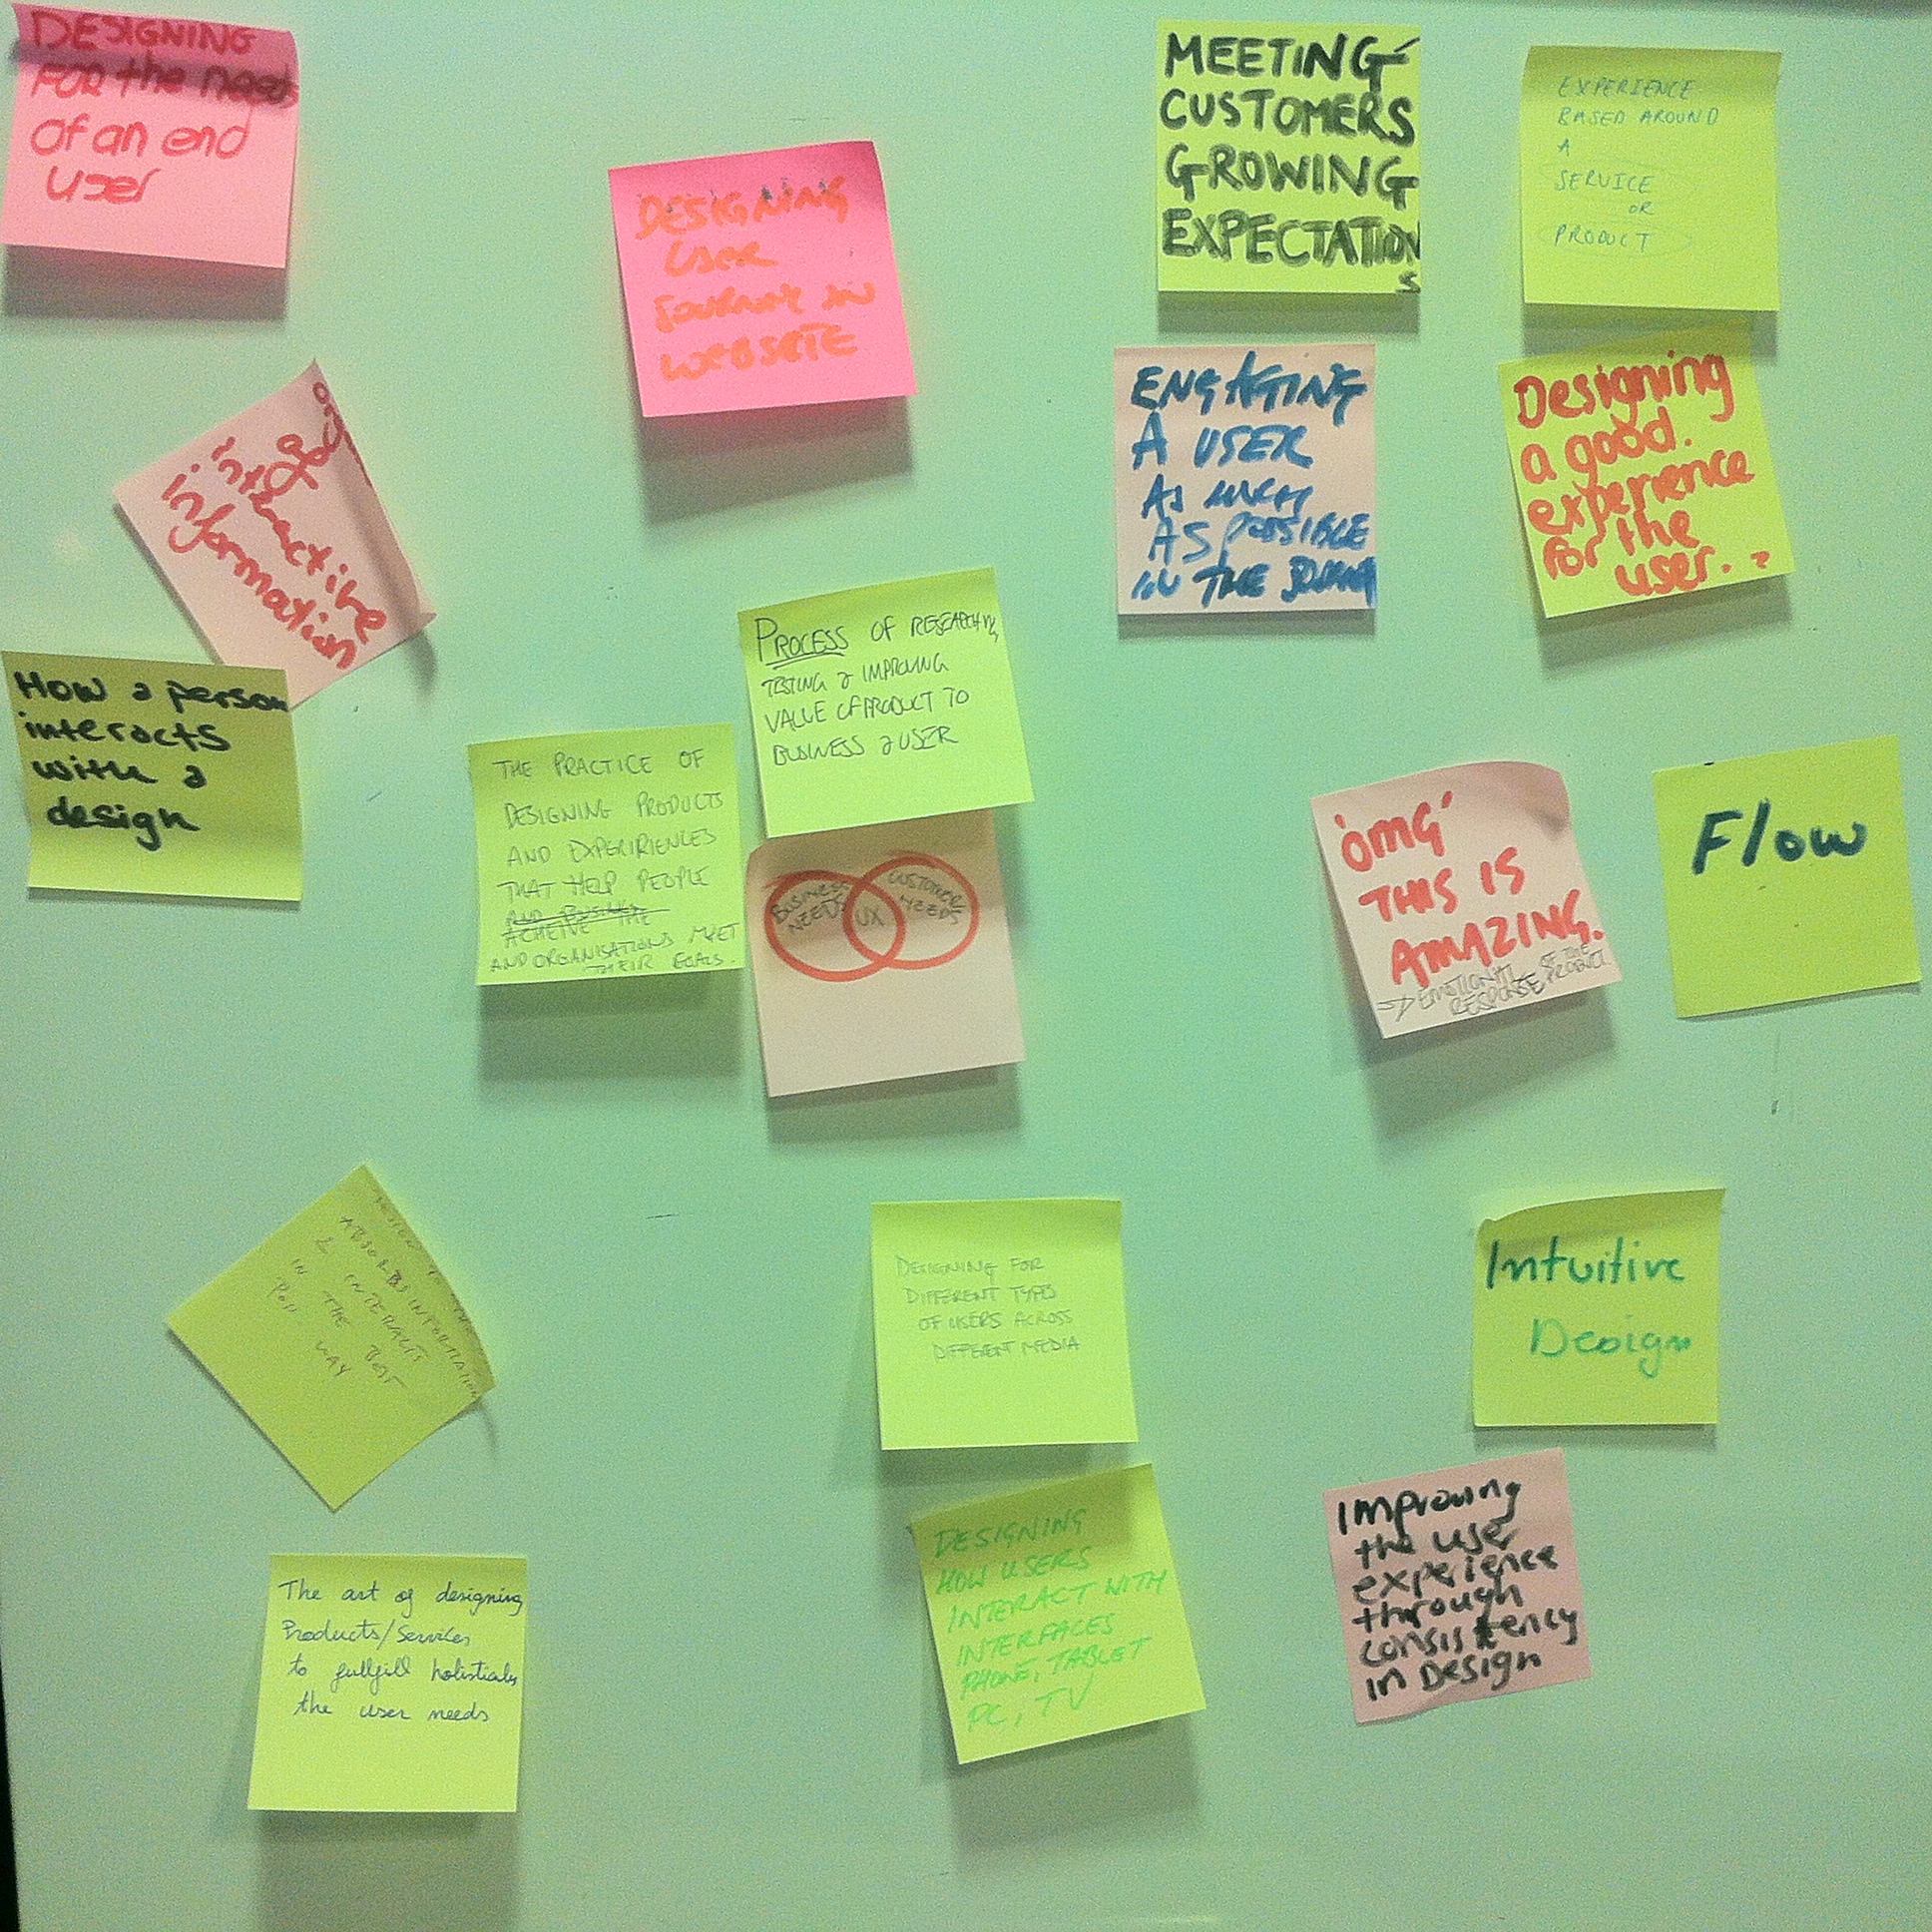 DESIGNING
FOR the needs
of an end
user
DESIGNING
User
Journey in
WEBSITE
MEETING
CUSTOMERS
GROWING
EXPECTATION
S
EXPERIENCE
BASED AROUND
A
SERVICE
OR
PRODUCT
of
interactive
information
ENGAGING
A USER
AS MUCH
AS POSSIBLE
IN THE JOURNEY
Designing
a good.
experience
for the
user. ?
How a person
interacts
with a
design
PROCESS OF RESEARCHING,
TESTING & IMPROVING
VALUE OF PRODUCT TO
BUSINESS & USER
THE PRACTICE OF
DESIGNING PRODUCTS
AND EXPERIRIENCES
THAT HELP PEOPLE
AND BUSINESS
ACHEIVE THE
AND ORGANISATIONS MEET
THEIR GOALS.
BUSINESS
NEEDS
UX
CUSTOMER
NEEDS
'OMG'
THIS IS
AMAZING.
EMOTIONAL
RESPONSE OF THE
PRODUCT.
Flow
ABSORBS INFORMATION
& INTERACTS
IN THE BEST
WAY
DESIGNING FOR
DIFFERENT TYPES
OF USERS ACROSS
DIFFERENT MEDIA
Intuitive
Design
The art of designing
Products/Services
to fullfill holistically
the user needs
DESIGNING
HOW USERS
INTERACT WITH
INTERFACES
PHONE, TABLET
PC, TV
Improving
the user
experience
through
consistency
in Design